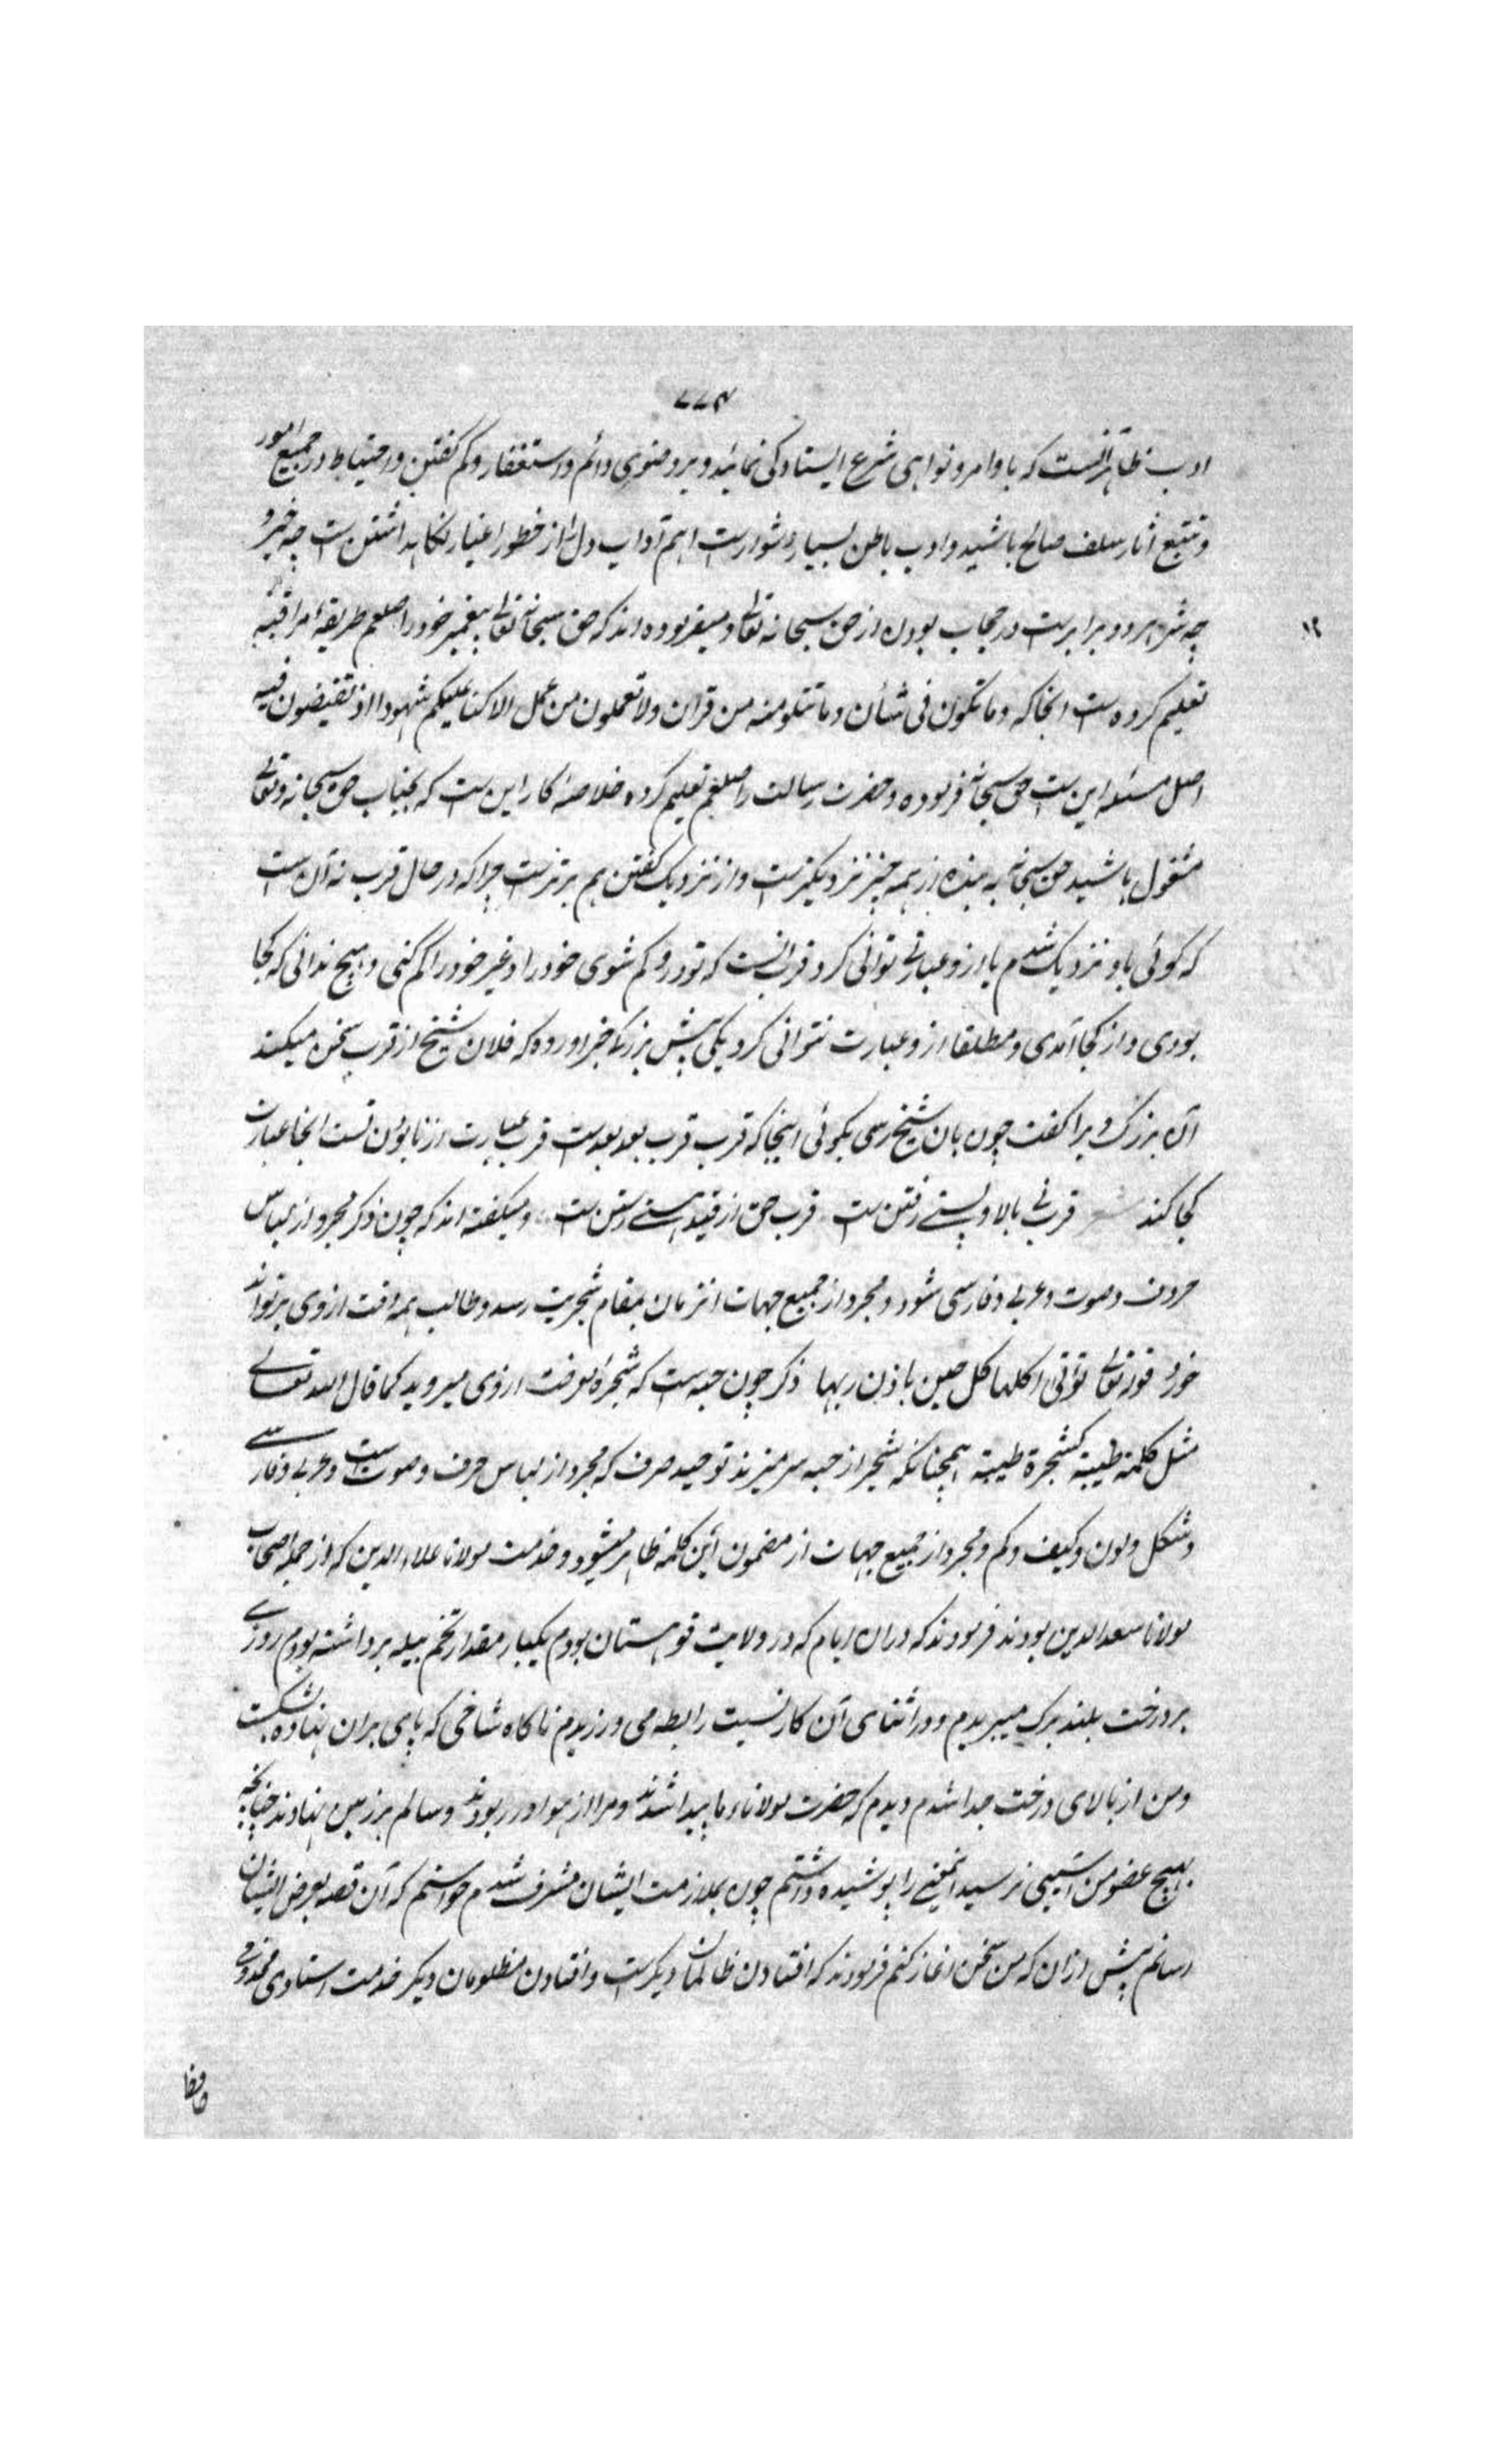 ادب ظاهر آنست که باوامر و نواهی شرع ایستادگی نمائید و بر وضوی دائم و استغفار و کم گفتن و احتیاط در جمیع امور
و تتبع آثار سلف صالح باشید و ادب باطن بسیار دشوارست اهم آداب دل را از خطور اغیار نگاه داشتن ست چه خیر و
چه شر هر دو برابرست در حجاب بودن از حق سبحانه تعالی و میفرموده اند که حق سبحانه تعالی پیغمبر خود را صلعم طریقهٔ مراقبه
تعلیم کرده ست انجا که وما تکون فی شأن وما تتلو منه من قرآن ولا تعملون من عمل الا کنا علیکم شهودا اذ تفیضون فیه
اصل مسئله این ست حق سبحانه فرموده و حضرت رسالت را صلعم تعلیم کرده خلاصهٔ کار این ست که بجناب حق سبحانه و تعالی
مشغول باشید حق سبحانه به بنده از همه چیز نزدیکترست و از نزدیک گفتن هم برترست چرا که در حال قرب نه آن ست
که گوئی باو نزدیک شدم یا ازو عبارتی توانی کرد قرب آنست که تو درو گم شوی خود را و غیر خود را گم کنی و هیچ ندانی که کجا
بودی و از کجا آمدی و مطلقا ازو عبارت نتوانی کرد یکی پیش بزرگی خبر آورده که فلان شیخ از قرب سخن میکند
آن بزرگ ویرا گفت چون بآن شیخ رسی بگوئی اینجا که قرب قرب بعد بعدست قرب عبارت از نابودن تست انجا عبارت
کجا کند شعر قرب نی بالا و پستی رفتن ست قرب حق از قید هستی رستن ست و میگفته اند که چون ذکر مجرد از لباس
حروف و صوت و عربی و فارسی شود و مجرد از جمیع جهات انزمان بمقام شجریت رسد و طالب همه وقت از وی بر تواند
خورد قوله تعالی تؤتی اکلها کل حین باذن ربها ذکر چون حبه ست که شجرهٔ معرفت از وی میروید کما قال الله تعالی
مثل کلمة طیبة کشجرة طیبة همچنانکه شجر از حبه سر میزند توحید صرف که مجرد از لباس حرف و صوت ست و عربی و فارسی
و شکل و لون و کیف و کم و مجرد از جمیع جهات از مضمون این کلمه ظاهر میشود و خدمت مولانا علاءالدین که از جمله اصحاب
مولانا سعدالدین بودند فرمودند که دران ایام که در ولایت قوهستان بودم یکبار مقدار تخم پیله برداشته بودم روزی
بر درخت بلند برگ میبریدم و در اثنای آن کار نسبت رابطه می ورزیدم ناگاه شاخی که پای بران نهاده شکست
و من از بالای درخت جدا شدم دیدم که حضرت مولانای ما پیدا شدند و مرا از هوا در ربودند و سالم بر زمین نهادند چنانچه
بهیچ عضو من آسیبی نرسید اینمعنی را پوشیده داشتم چون بملازمت ایشان مشرف شدم خواستم که آن قصه بعرض ایشان
رسانم پیش ازان که من سخن آغاز کنم فرمودند که افتادن ظالمان دیگرست و افتادن مظلومان دیگر خدمت استادی مخدومی